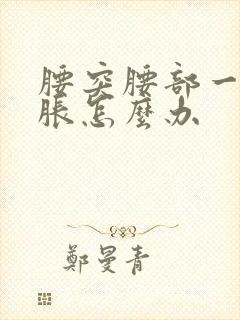 腰突腰部一
脹怎麼办
鄭曼青